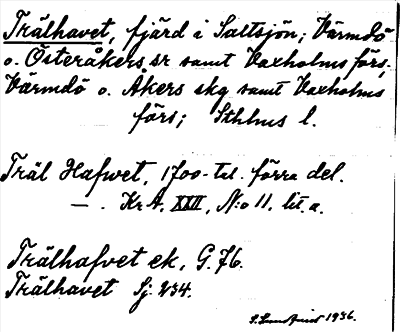 Trälhavet, fjärd i Saltsjön; Värmdö
o. Österåkers sr samt Vaxholms förs.
Värmdö o. Åkers skg samt Vaxholms
förs; Sthlms l.
Träl Hafwet, 1700-tal. förra del.
— . Kr A. XXII, N:o 11. lit. a.
Trälhafvet ek, G. 76.
Trälhavet Sj: 234.
1936.